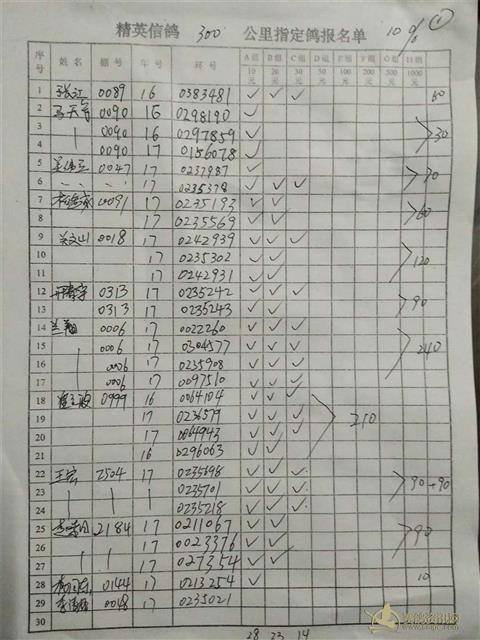 精英信鸽 300 公里指定鸽报名单 10% ①
序号 姓名 棚号 年号 环号 A组10元 B组20元 C组30元 D组50元 E组100元 F组200元 G组500元 H组1000元
1 张江 0089 16 0383481 ✓ ✓ ✓ 60
2 0090 16 0298190 ✓
3 0090 16 0297859 ✓ 30
4 0090 17 0156078 ✓
5 0047 17 0237987 ✓
6 17 0235378 ✓ ✓ ✓ 70
7 0091 17 0235193 ✓ ✓
8 17 0235569 ✓ ✓ 60
9 关文山 0018 17 0242939 ✓ ✓ ✓
10 17 0235302 ✓ ✓
11 17 0242931 ✓ ✓ 120
12 0313 17 0235242 ✓ ✓ ✓
13 0313 17 0235243 ✓ ✓ 90
14 兰翔 0006 17 0022260 ✓ ✓ ✓
15 0006 17 0304577 ✓ ✓ ✓
16 0006 17 0235908 ✓ ✓ ✓ 240
17 0006 17 0097510 ✓ ✓ ✓
18 0999 16 0064104 ✓ ✓ ✓
19 17 0236579 ✓ ✓ ✓ 210
20 17 0064943 ✓ ✓ ✓
21 16 0296063 ✓ ✓
22 王宏 2504 17 0235698 ✓ ✓ ✓
23 0235701 ✓ ✓ ✓ 90+90
24 0235218 ✓ ✓ ✓
25 2184 17 0211067 ✓ ✓
26 17 0023376 ✓ ✓ 90
27 17 027354 ✓ ✓
28 0144 17 0213254 ✓ 10
29 0048 17 0235021
30
28 23 14